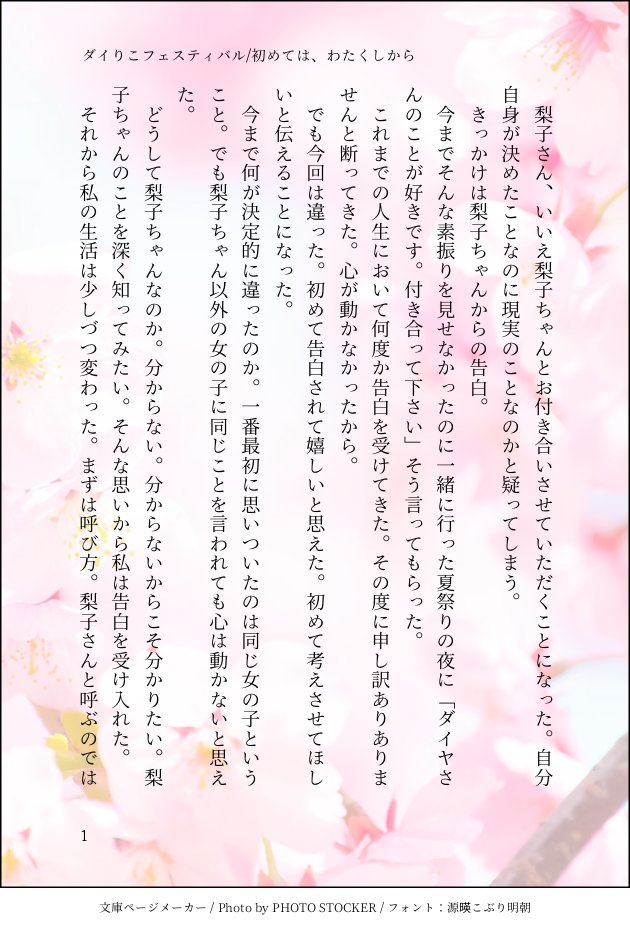 ダイりこフェスティバル/初めては、わたくしから
梨子さん、いいえ梨子ちゃんとお付き合いさせていただくことになった。自分
自身が決めたことなのに現実のことなのかと疑ってしまう。
きっかけは梨子ちゃんからの告白。
今までそんな素振りを見せなかったのに一緒に行った夏祭りの夜に「ダイヤさ
んのことが好きです。付き合って下さい」そう言ってもらった。
これまでの人生において何度か告白を受けてきた。その度に申し訳ありありま
せんと断ってきた。心が動かなかったから。
でも今回は違った。初めて告白されて嬉しいと思えた。初めて考えさせてほし
いと伝えることになった。
今まで何が決定的に違ったのか。一番最初に思いついたのは同じ女の子という
こと。でも梨子ちゃん以外の女の子に同じことを言われても心は動かないと思え
た。
どうして梨子ちゃんなのか。分からない。分からないからこそ分かりたい。梨
子ちゃんのことを深く知ってみたい。そんな思いから私は告白を受け入れた。
それから私の生活は少しづつ変わった。まずは呼び方。梨子さんと呼ぶのでは
1
文庫ページメーカー / Photo by PHOTO STOCKER / フォント：源暎こぶり明朝